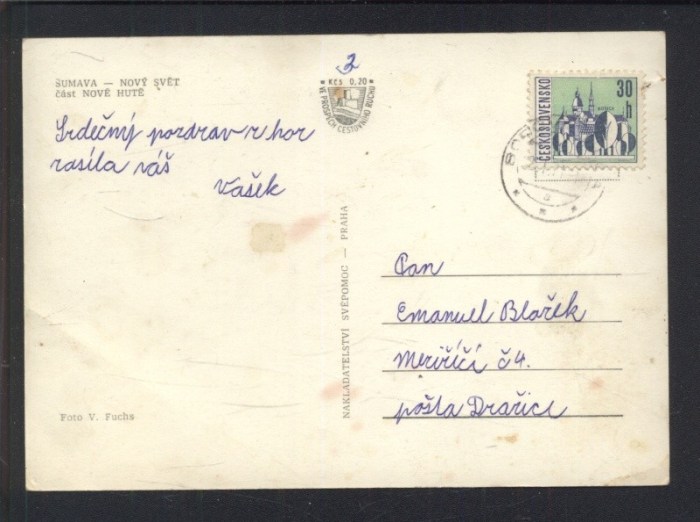 ŠUMAVA — NOVÝ SVĚT
část NOVÉ HUTĚ
3
Kčs 0,20
VE PROSPĚCH CESTOVNÍHO RUCHU
30
h
ČESKOSLOVENSKO
Srdečný pozdrav z hor
zasílá váš
Vašek
NAKLADATELSTVÍ SVÉPOMOC — PRAHA
Pan
Emanuel Blažek
Meziříčí č 4.
pošta Dražice
Foto V. Fuchs